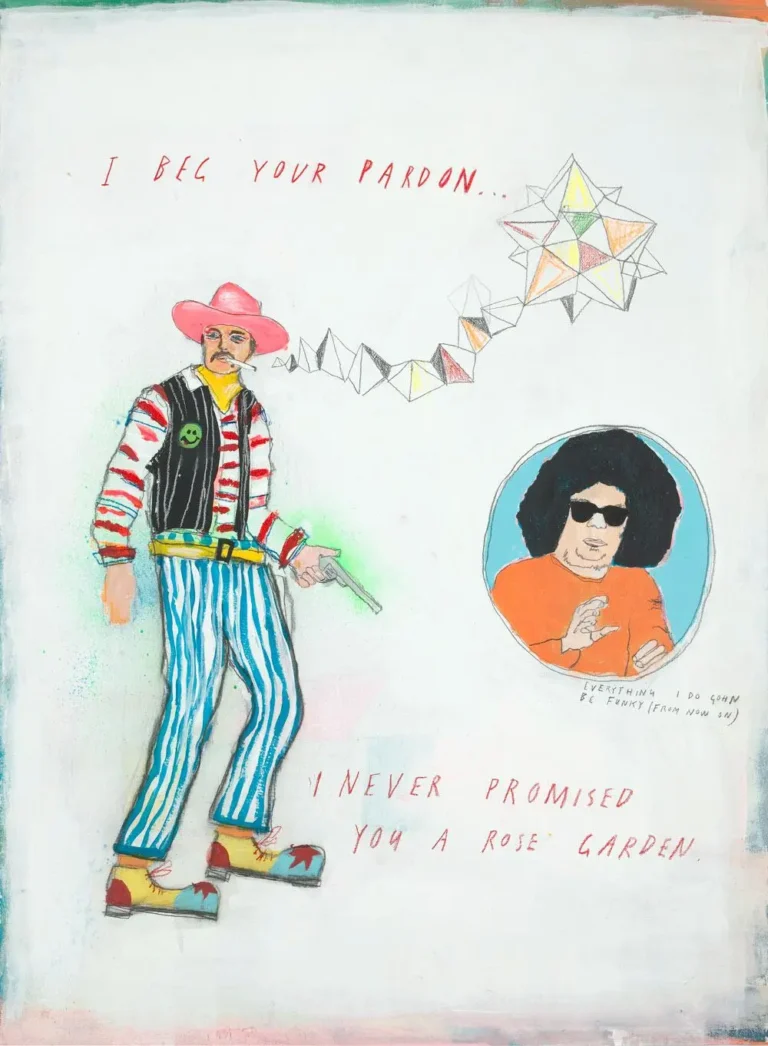 I BEG YOUR PARDON...
EVERYTHING I DO GOHN
BE FUNKY (FROM NOW ON)
I NEVER PROMISED
YOU A ROSE GARDEN.